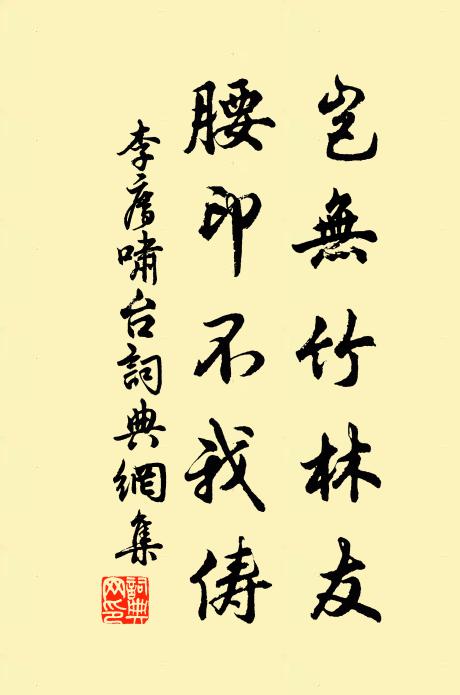 豈無竹林友
腰印不我儔
李廌嘯台詞典網集
詞典